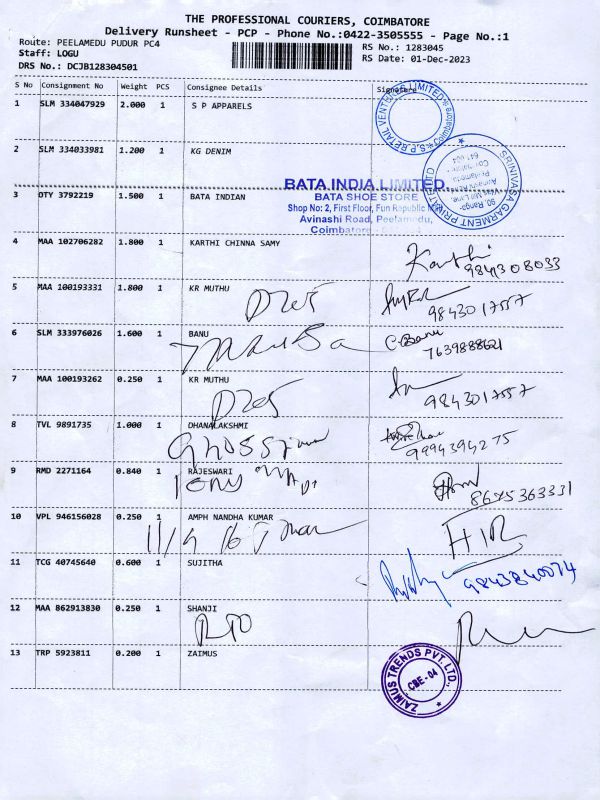 THE PROFESSIONAL COURIERS, COIMBATORE
Delivery Runsheet - PCP - Phone No.:0422-3505555 - Page No.:1
Route: PEELAMEDU PUDUR PC4
Staff: LOGU
DRS No.: DCJB128304501
RS No.: 1283045
RS Date: 01-Dec-2023
S No Consignment No Weight PCS Consignee Details Signature
1 SLM 334047929 2.000 1 S P APPARELS
2 SLM 334033981 1.200 1 KG DENIM
3 OTY 3792219 1.500 1 BATA INDIAN
BATA INDIA LIMITED
BATA SHOE STORE
Shop No: 2, First Floor, Fun Republic
Avinashi Road, Peelamedu,
Coimbatore
SRINIVASA GARMENT PRIVATE LTD
4 MAA 102706282 1.800 1 KARTHI CHINNA SAMY
Karthi
9841308033
5 MAA 100193331 1.800 1 KR MUTHU
9843017557
6 SLM 333976026 1.600 1 BANU
C. Banu
7639888621
7 MAA 100193262 0.250 1 KR MUTHU
9843017557
8 TVL 9891735 1.000 1 DHANALAKSHMI
9994394275
9 RMD 2271164 0.840 1 RAJESWARI
8675363331
10 VPL 946156028 0.250 1 AMPH NANDHA KUMAR
11 TCG 40745640 0.600 1 SUJITHA
9843840074
12 MAA 862913830 0.250 1 SHANJI
13 TRP 5923811 0.200 1 ZAIMUS
ZAIMUS TRENDS PVT. LTD.,
CBE-04